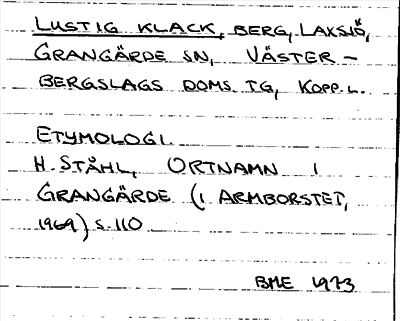 LUSTIG KLACK, BERG, LAXSJÖ,
GRANGÄRDE SN, VÄSTER-
BERGSLAGS DOMS. TG, KOPP. L.
ETYMOLOGI.
H. STÅHL, ORTNAMN I
GRANGÄRDE (I ARMBORSTET,
1969) S. 110
BME 1973